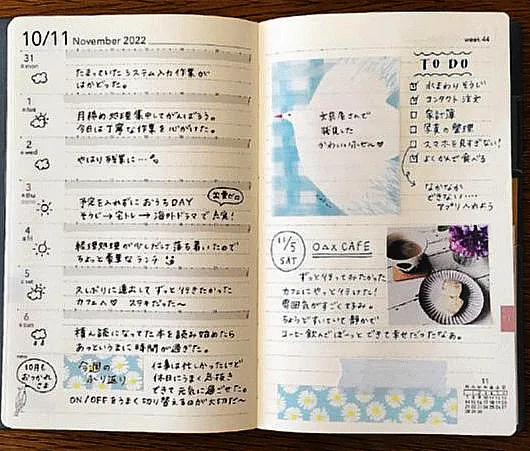 10/11 November 2022
31
mon
たまっていたシステム入力作業が
はかどった。
1
tue
月締め処理集中してがんばろう。
今日は丁寧な作業を心がけた。
2
wed
やはり残業に…
3
thu
出費ゼロ
予定を入れずにおうちDAY
そうじ→宅トレ→海外ドラマで充実!
4
fri
経理処理が少しだけ落ち着いたので
ちょっと豪華なランチ
5
sat
久しぶりに遠出して ずっと行きたかった
カフェへ♡ ステキだった〜
6
sun
積ん読になってた本を読み始めたら
あっというまに時間が過ぎた。
10月も
おつかれ
さま
今週の
ふり返り
仕事は忙しかったけど
休日にうまく息抜き
できて元気に過ごせた。
ON/OFFをうまく切り替えるのが大切だ〜
week 44
TO DO
水まわりそうじ
コンタクト注文
家計簿
写真の整理
スマホを見すぎない!
よくかんで食べる
なかなか
できない…
アプリ入れよう
文具屋さんで
発見した
かわいい ふせん♡
11/5
SAT
○△× CAFE
ずっと行ってみたかった
カフェにやっと行けた!
雰囲気がすごく好み。
ちょうどすいていて静かで
コーヒー飲んでぼーっとできて幸せだったなあ。
11